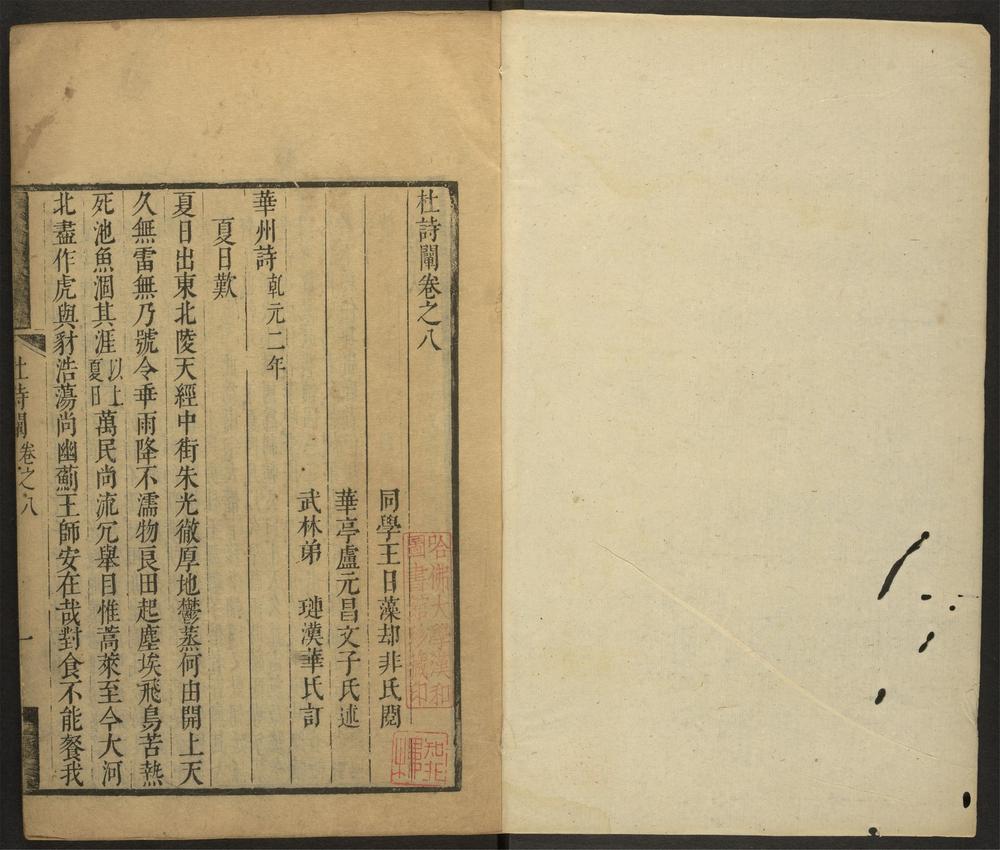 杜詩闡卷之八
同學王日藻却非氏閱
華亭盧元昌文子氏述
武林弟　璉漢華氏訂
華州詩乾元二年
夏日歎
夏日出東北陵天經中街朱光徹厚地鬱蒸何由開上天
久無雷無乃號令乖雨降不濡物良田起塵埃飛鳥苦熱
死池魚涸其涯以上夏日萬民尚流冗舉目惟蒿萊至今大河
北盡作虎與豺浩蕩尚幽薊王師安在哉對食不能餐我
杜詩闡卷之八
一
哈佛大學漢和
圖書館珍藏印